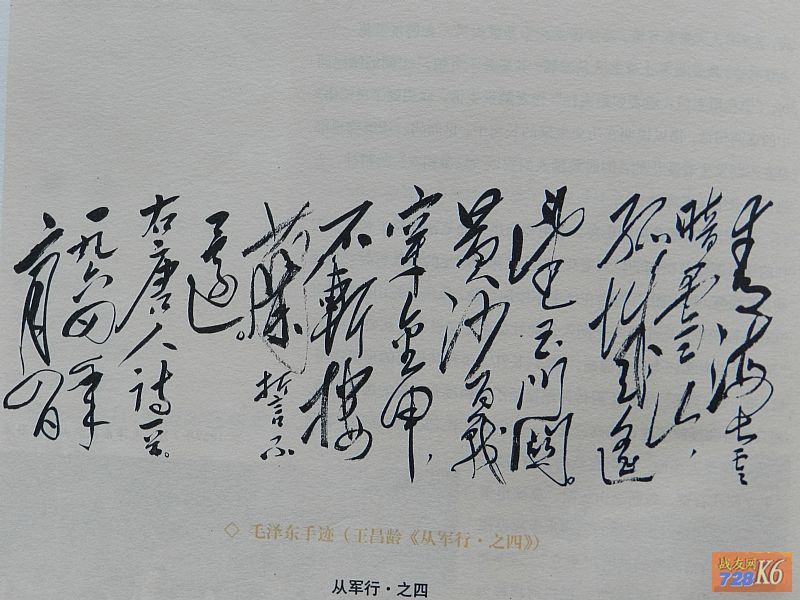 青海长云
暗雪山，
孤城遥
望玉門關。
黄沙百戰
穿金甲，
不斬樓
蘭誓不
還。
右唐人詩一首。
一九六四年
月日
◇ 毛泽东手迹（王昌龄《从军行·之四》）
从军行·之四
战友网
728K6